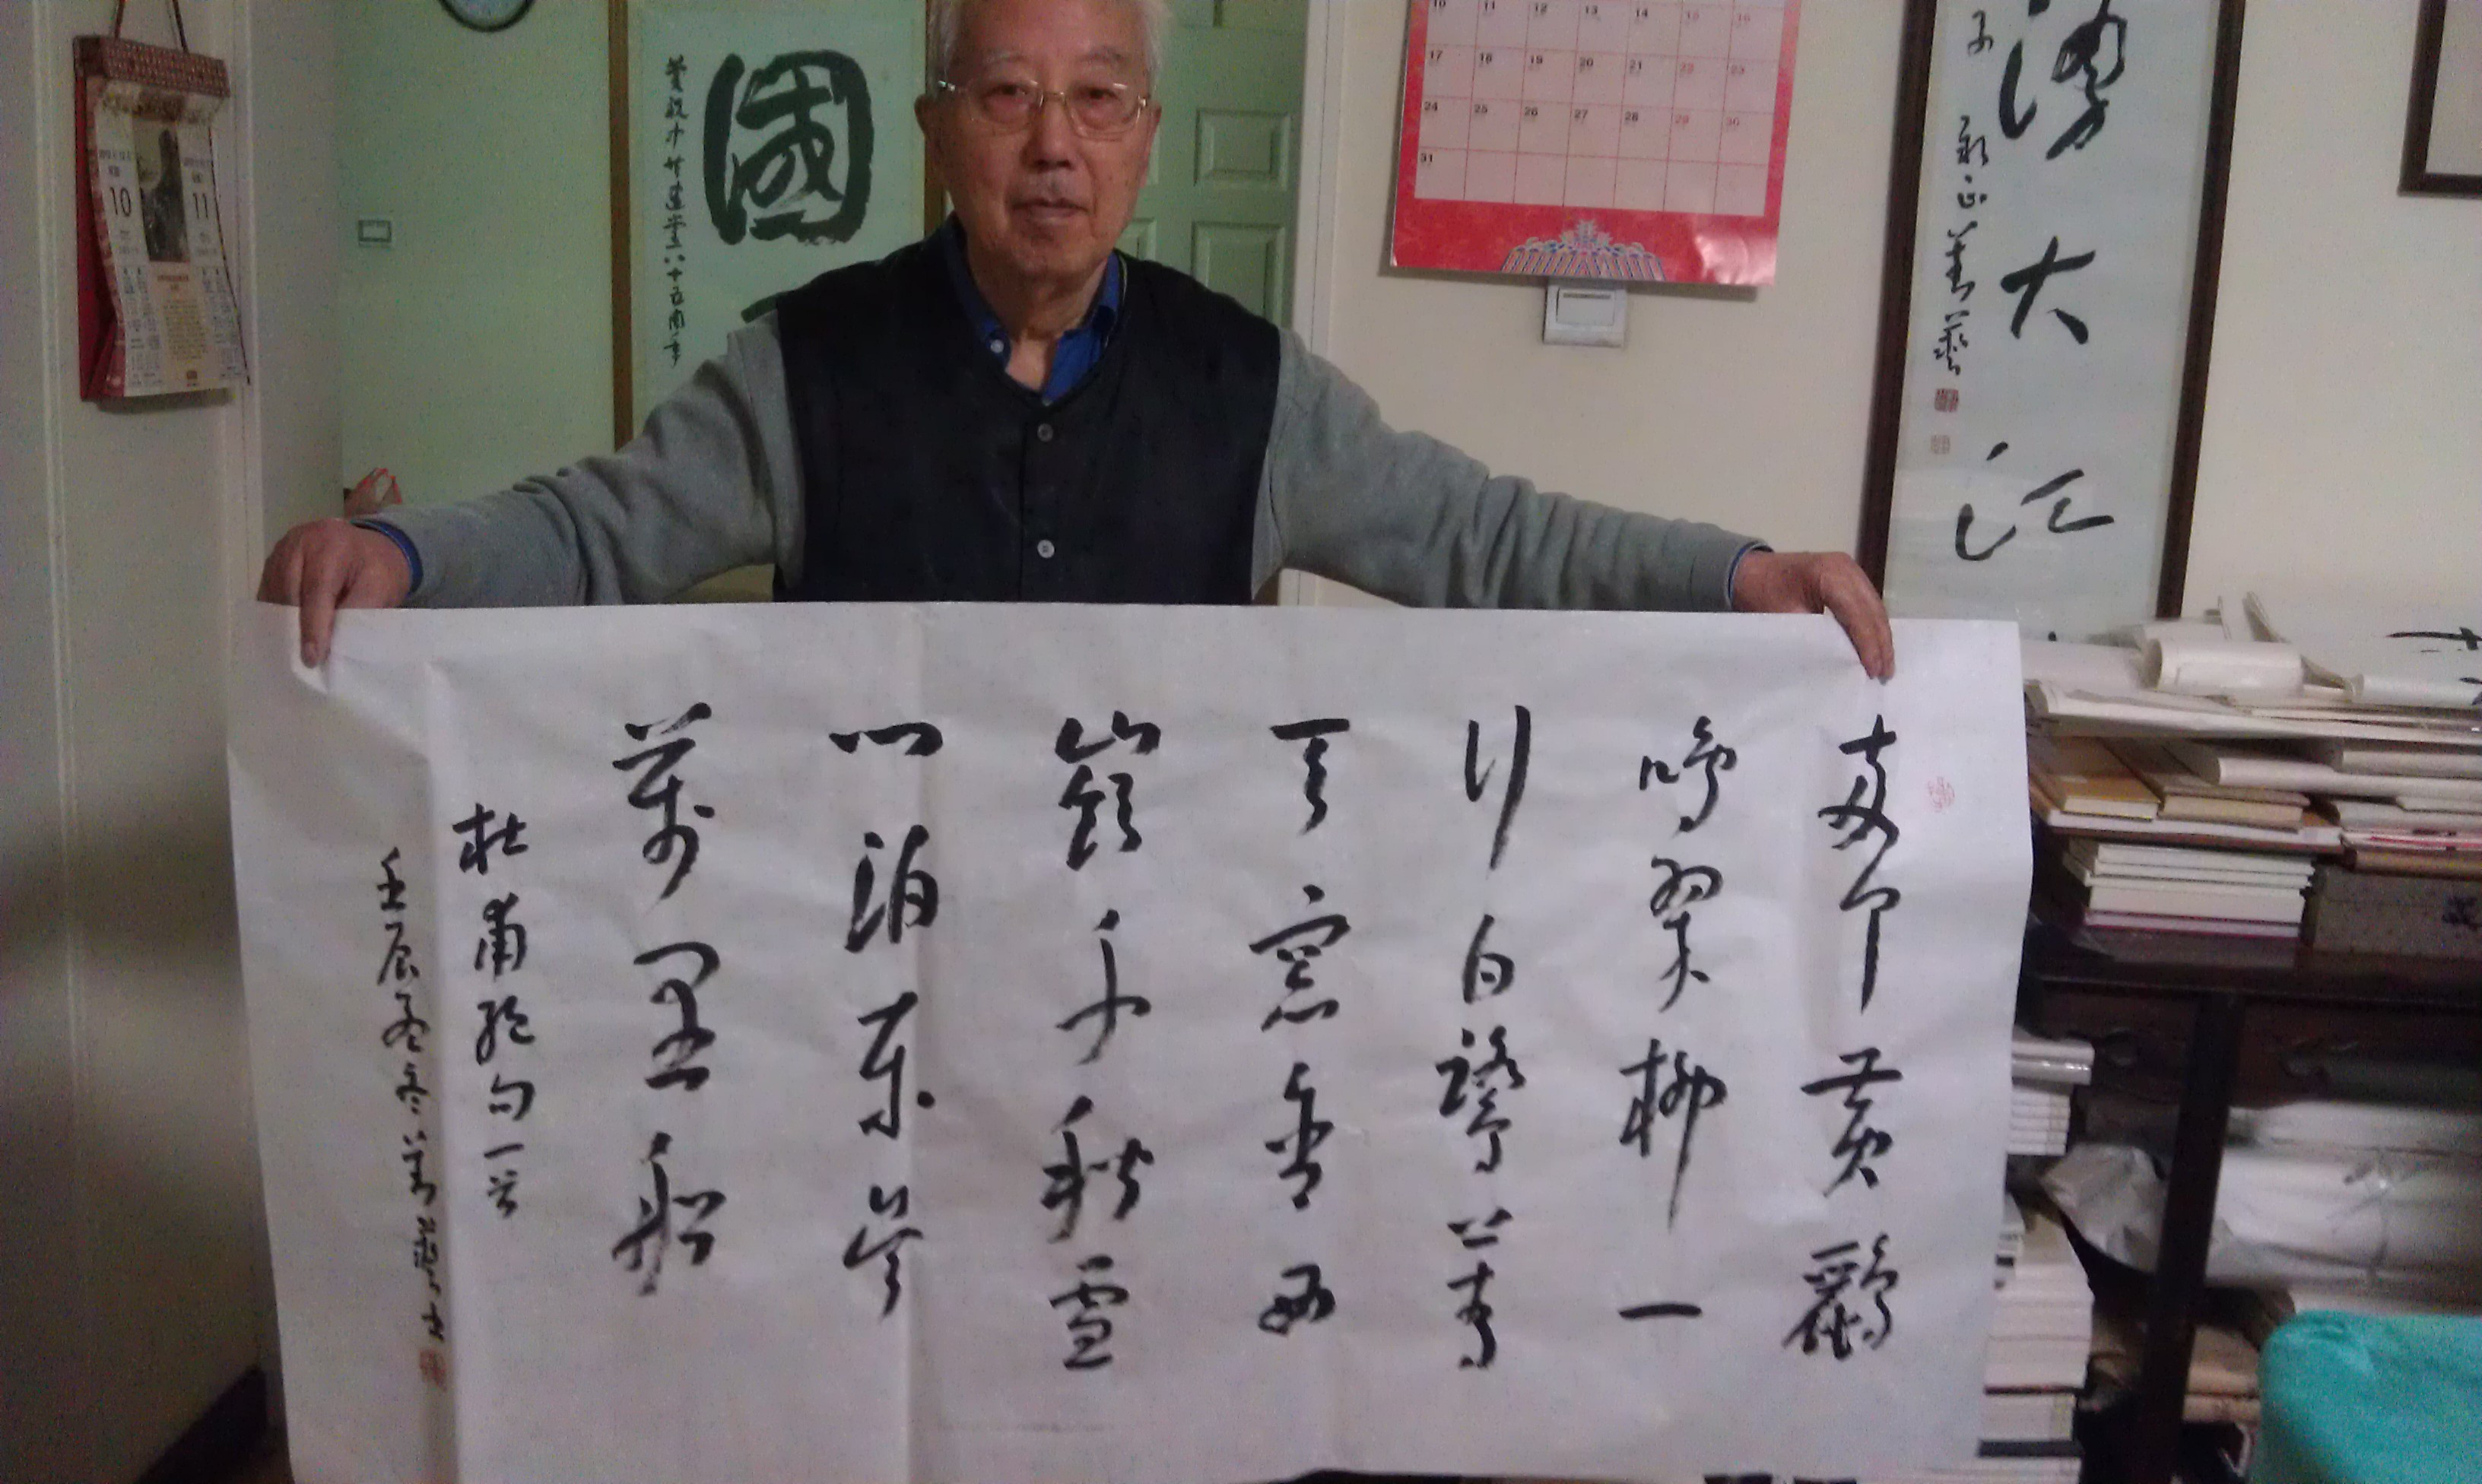 兩个黃鸝
鳴翠柳一
行白鷺上青
天窗含西
嶺千秋雪
門泊東吳
萬里船
杜甫絕句一首
壬辰孟冬
國
慶祝中共建黨八十五周年
大江
10 11
10 11 12 13 14 15 16
17 18 19 20 21 22 23
24 25 26 27 28 29 30
31